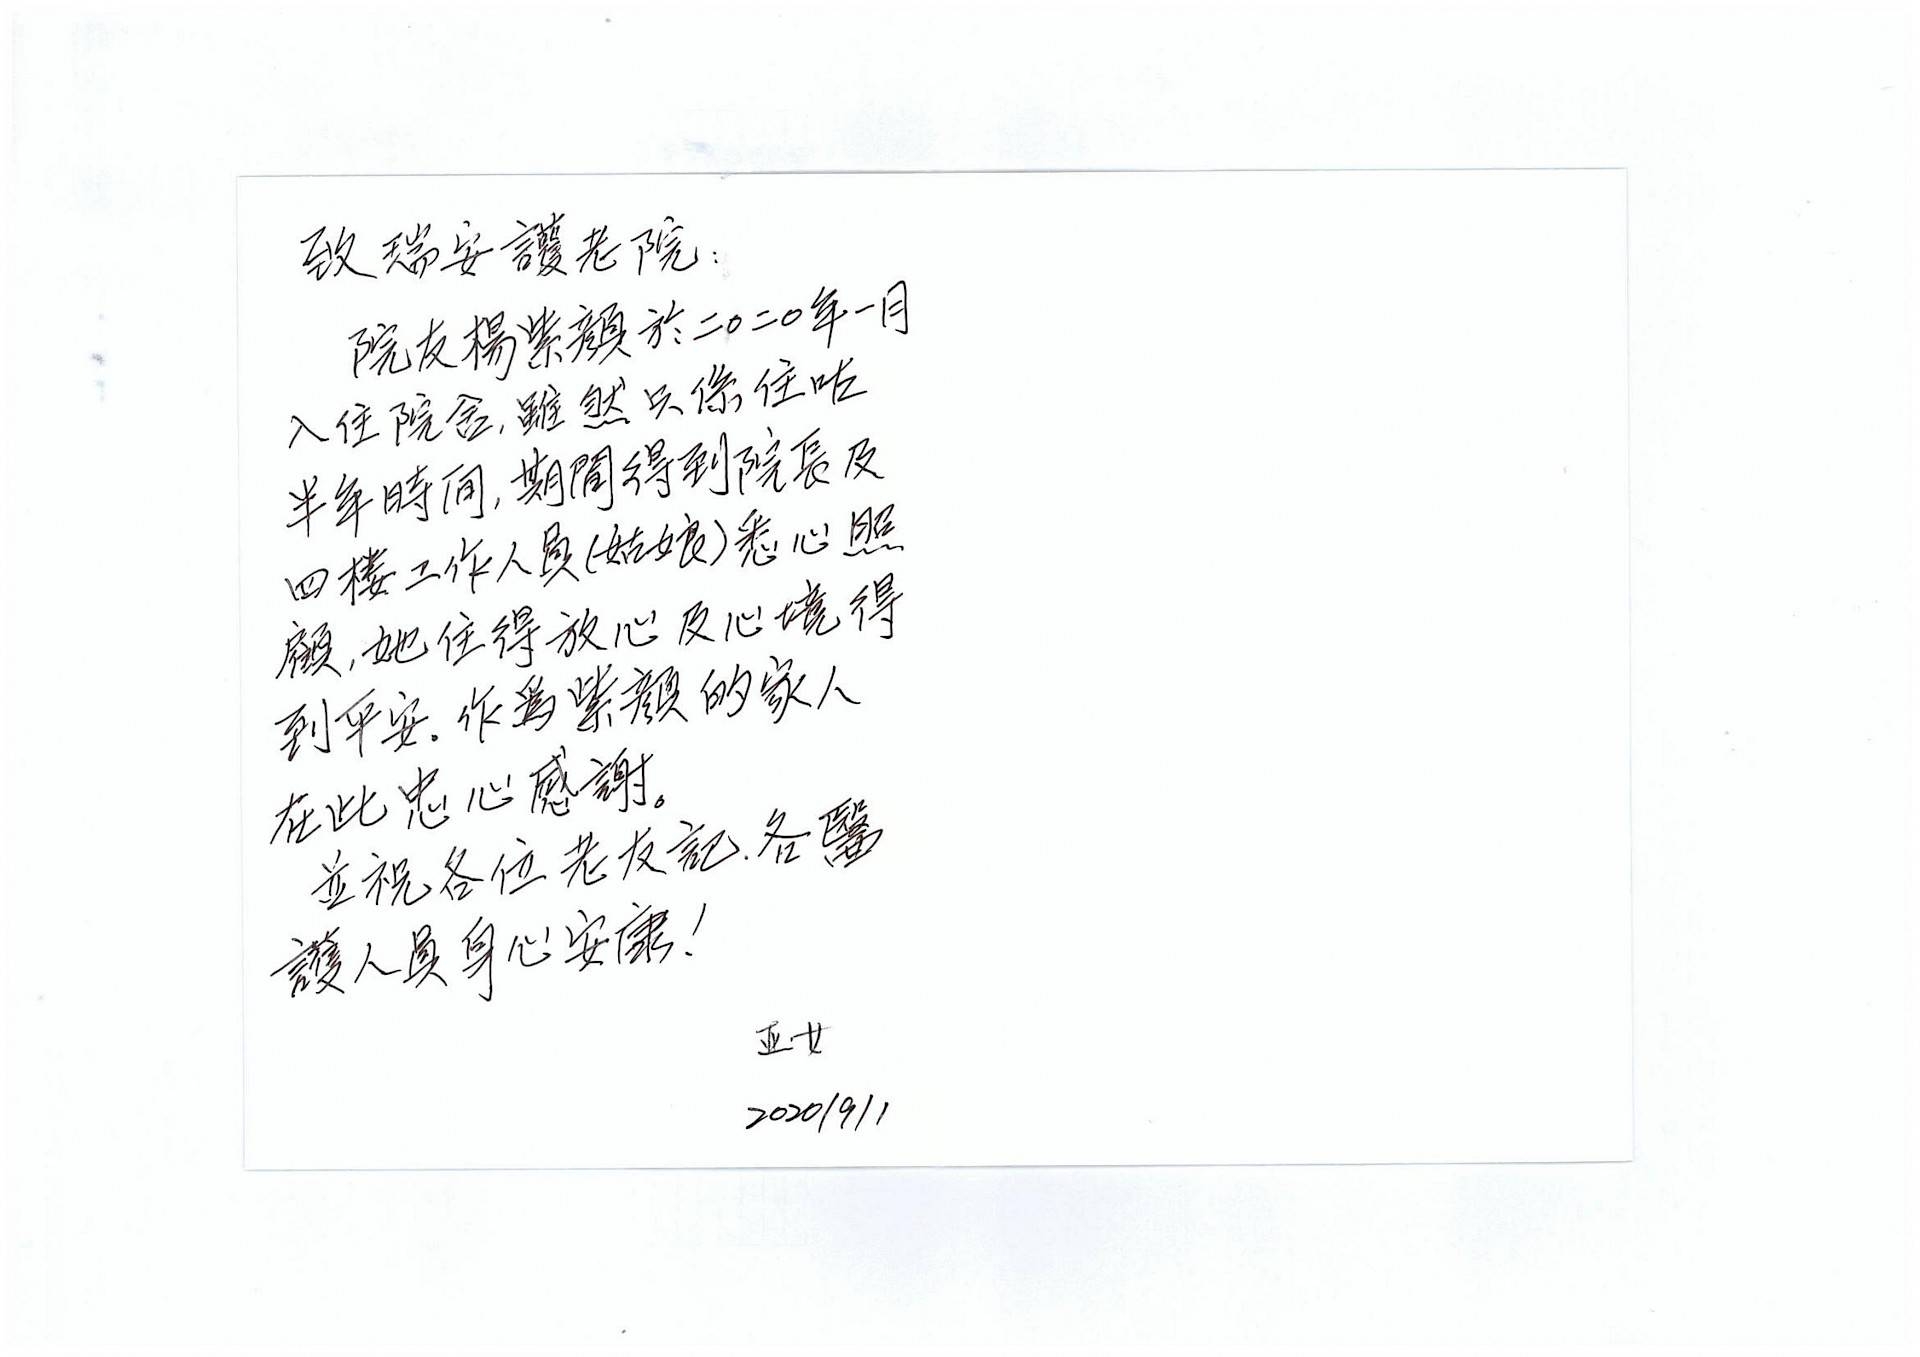 致瑞安護老院：
院友楊紫顏於二〇二〇年一月
入住院舍，雖然只係住咗
半年時间，期間得到院長及
四楼工作人員(姑娘)悉心照
顧，她住得放心及心境得
到平安。作為紫顏的家人
在此忠心感謝。
並祝各位老友記．各醫
護人員身心安康！
亚女
2020/9/1